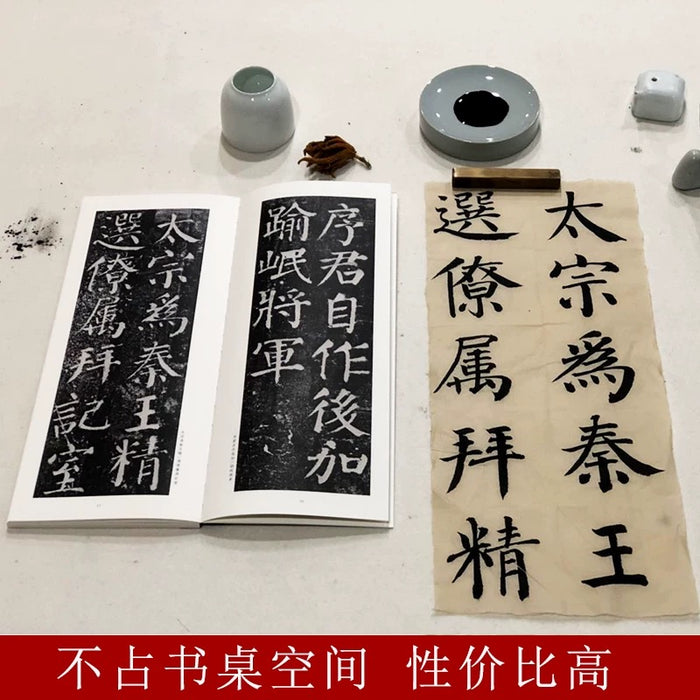 序君自作後加
踰岷將軍
太宗爲秦王精
選僚属拜記室
太宗爲秦王
選僚属拜精
不占书桌空间 性价比高